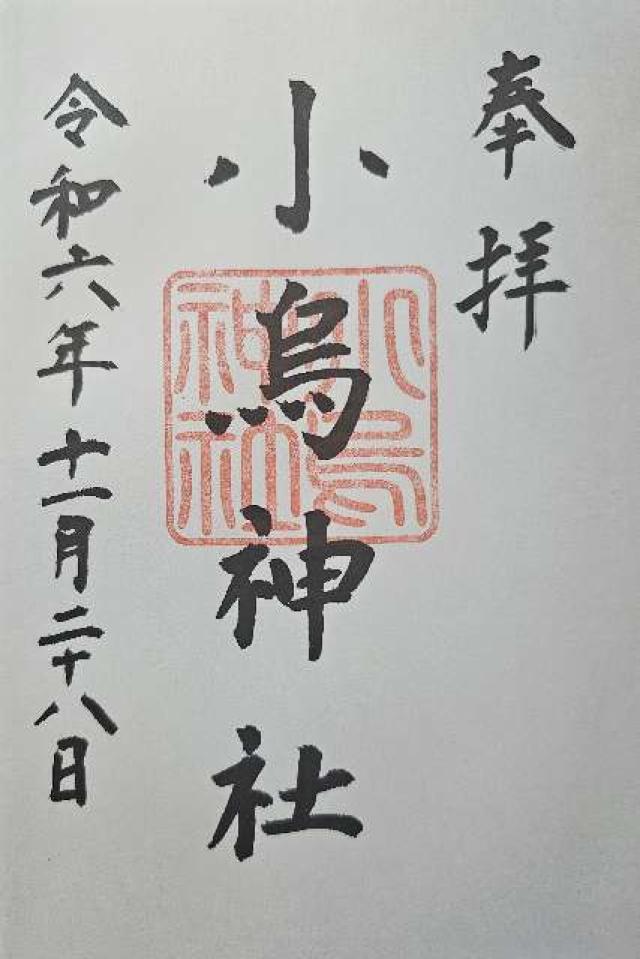 奉拝
小烏神社
小烏
神社
令和六年十一月二十八日